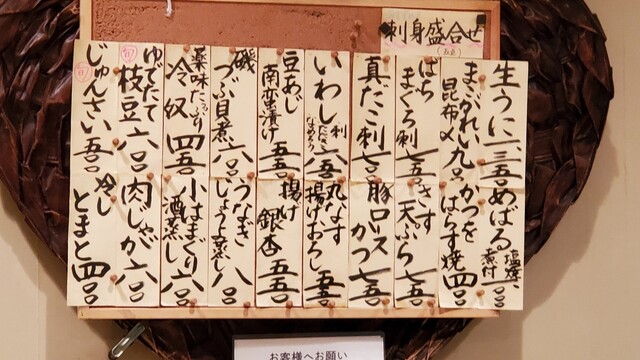 刺身盛合せ
生うに 一、三五〇
まこがれい 昆布〆 九〇〇
ばちまぐろ刺 七五〇
真だこ刺 七〇〇
いわし 刺 たたき なめろう 六五〇
豆あじ 南蛮漬け 五五〇
磯つぶ貝煮 六〇〇
薬味たっぷり 冷奴 四五〇
ゆでたて 枝豆 六〇〇
旬
じゅんさい 五〇〇
旬
めばる 塩焼 煮付
かつをはらす焼 四〇〇
きす天ぷら 七五〇
豚ロースカツ 七五〇
丸なす揚げおろし 五五〇
揚げ銀杏 五五〇
うなぎじょうよ蒸し 八〇〇
小はまぐり酒蒸し 六〇〇
肉じゃが 六〇〇
冷しとまと 四〇〇
お客様へお願い